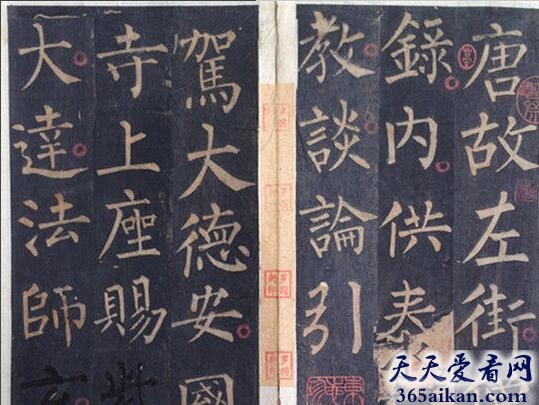 唐故左街
錄内供奉
教談論引
駕大德安國
寺上座賜紫
大達法師玄
天天爱看网
365aikan.com